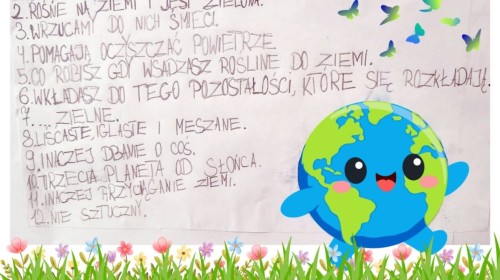 2. ROŚNE NA ZIEMI I JEST ZIELONA.
3. WRZUCAMY DO NICH ŚMIECI.
4. POMAGAJĄ OCZYSZCZAĆ POWIETRZE
5. CO ROBISZ GDY WSADZASZ ROŚLINE DO ZIEMI.
6. WKŁADASZ DO TEGO POZOSTAŁOŚCI, KTÓRE SIĘ ROZKŁADAJĄ.
7. ... ZIELNE.
8. LIŚCASTE, IGLASTE I MESZANE.
9. INACZEJ DBANIE O COŚ.
10. TRZECIA PLANETA OD SŁOŃCA.
11. INACZEJ PRZYCIĄGANIE ZIEMI.
12. NIE SZTUCZNY.